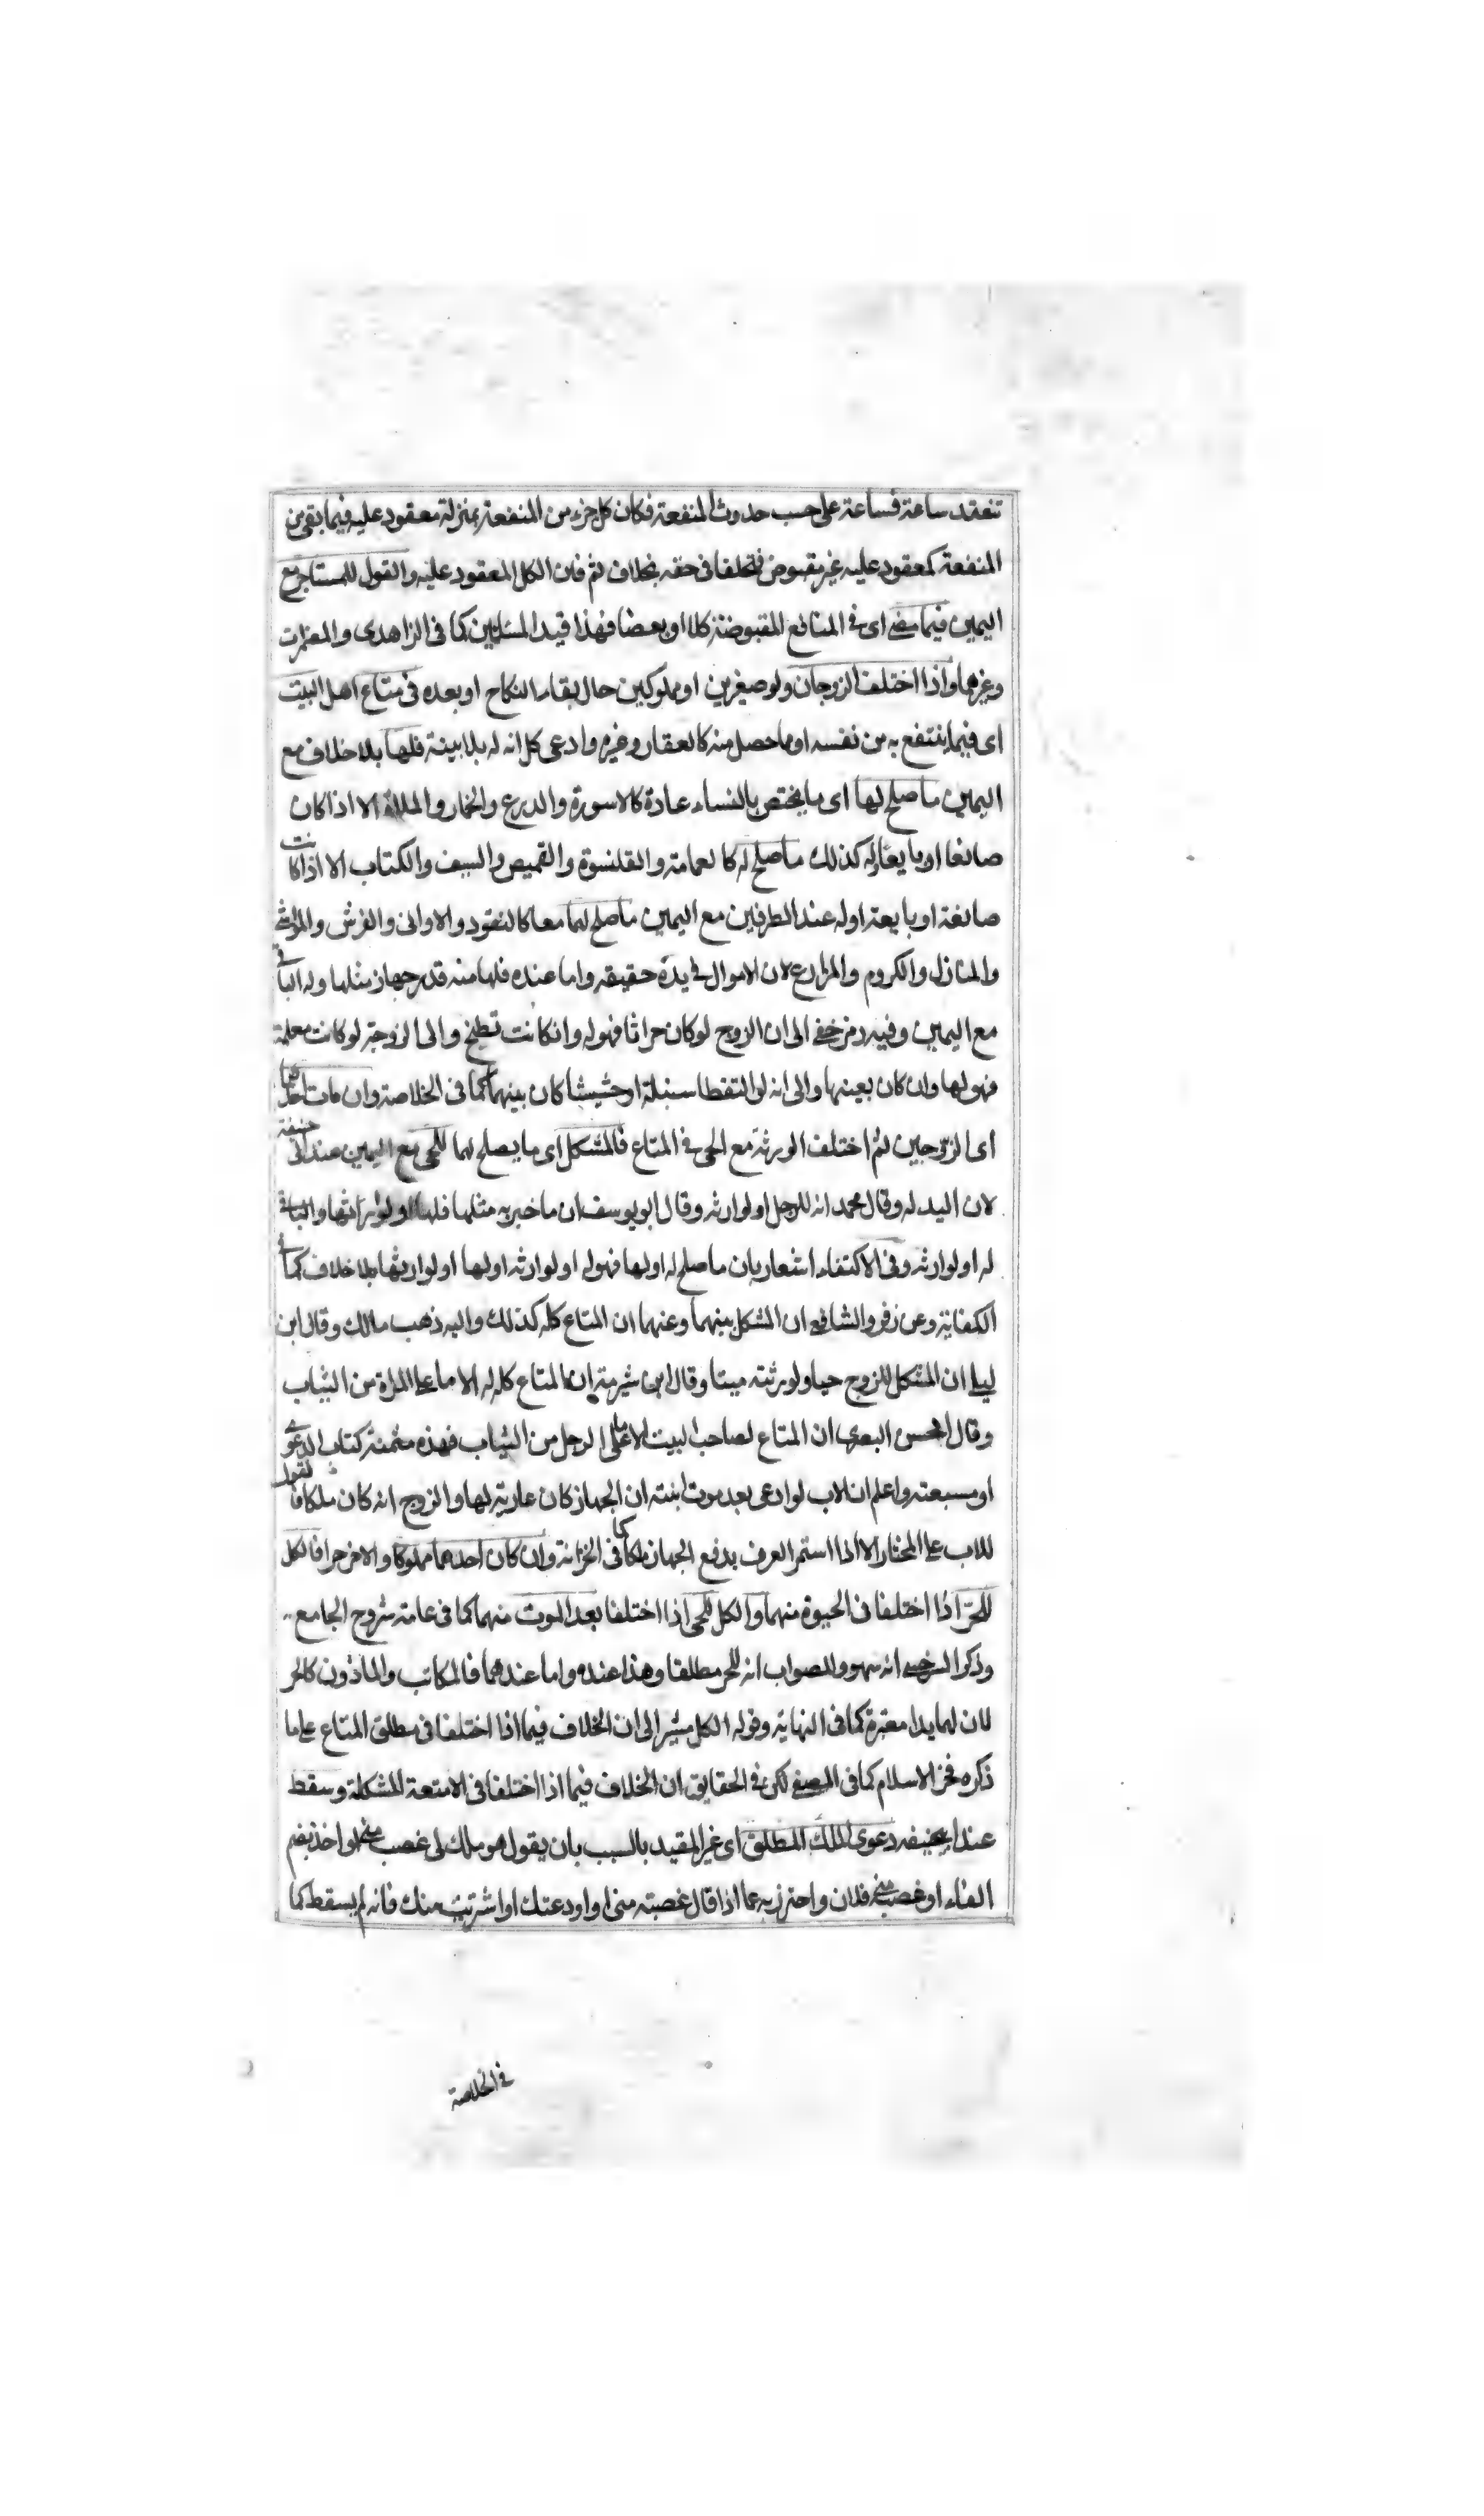 تنعقد ساعة فساعة على حسب حدوث المنفعة فكان كل جزء من المنفعة بمنزلة معقود عليه فيما بقى من
المنفعة كمعقود عليه غير مقبوض فتحلفا فى حقه بخلاف ثم فان الكل المعقود عليه والقول للمستاجر مع
اليمين فيما مضى اى فى المنافع المقبوضة كلا او بعضا فهذا قيد المسئلتين كما فى الزاهدى والمضمرات
وغيرها واذا اختلف الزوجان ولو صغيرين او مملوكين حال بقاء النكاح او بعده فى متاع اهل البيت
اى فيما ينتفع به من نفسه او مما حصل منه كالعقار وغيره وادعى كل انه له بلا بينة فلها بلا خلاف مع
اليمين ما صلح لها اى ما يختص بالنساء عادة كالاسورة والدرع والخمار والملاة الا اذا كان
صانعا او بايعا وله كذلك ما صلح له كالعمامة والقلنسوة والقميص والسيف والكتاب الا اذا كانت
صانعة او بايعة اوله عند الطرفين مع اليمين ما صلح لهما معا كالنقود والاوانى والفرش والمواشى
والمنازل والكروم والمزارع لان الاموال فى يده حقيقه واما عنده فلها منه قدر جهاز مثلها وله الباقى
مع اليمين وفيه رمز خفى الى ان الزوج لو كان حراثا فهوله وانكانت تطبخ والى الزوجة لو كانت معلمة
فهو لها وان كان بعينها والى انه لو التقطا سنبلة او حشيشا كان بينهما كما فى الخلاصة وان مات احدهما
اى الزوجين ثم اختلف الورثة مع الحى فى المتاع فالمشكل اى ما يصلح لهما للحى مع اليمين عند ابى حنيفة
لان اليد له وقال محمد انه للرجل او لوارثه وقال ابو يوسف ان ما خبر به مثلها فلها او لوارثها والباقى
له او لوارثه وفى الاكتفاء اشعار بان ما صلح له اولها فهوله او لوارثه اولها او لوارثها بلا خلاف كما فى
الكفاية وعن زفر والشافعى ان المشكل بينهما وعنهما ان المتاع كله كذلك واليه ذهب مالك وقال ابن
ليلى ان المشكل للزوج حيا ولورثته ميتا وقال ابن شبرمة ان المتاع كله له الا ما على المراة من الثياب
وقال الحسن البصرى ان المتاع لصاحب البيت الا ما على الرجل من الثياب فهذه مثمنة كتاب الدعوى
او مسبعته واعلم ان الاب لو ادعى بعد موت ابنته ان الجهاز كان عارية لها والزوج انه كان ملكا فالقول
للاب على المختار الا اذا استمر العرف بدفع الجهاز ملكا كما فى الخزانة وان كان احدهما مملوكا والاخر حرا فالكل
للحر اذا اختلفا فى الحيوة منهما والكل للحى اذا اختلفا بعد الموت منهما كما فى عامة شروح الجامع
وذكر السرخسى انه سهو والصواب انه للحر مطلقا وهذا عنده واما عندهما فالمكاتب والماذون كالحر
لان لهما يدا معتبرة كما فى النهاية وقوله الكل مشير الى ان الخلاف فيما اذا اختلفا فى مطلق المتاع على ما
ذكره فخر الاسلام كما فى المصفى لكن فى الحقايق ان الخلاف فيما اذا اختلفا فى الامتعة المشكلة وسقط
عند ابيحنيفه دعوى الملك المطلق اى غير المقيد بالسبب بان يقول هو ملك لى غصب منى او اخذ بضم
الفاء او غصب منى فلان واحترز به عما اذا قال غصبته منى او اودعتك او اشتريت منك فانه لم يسقط كما
فى الخلاصة